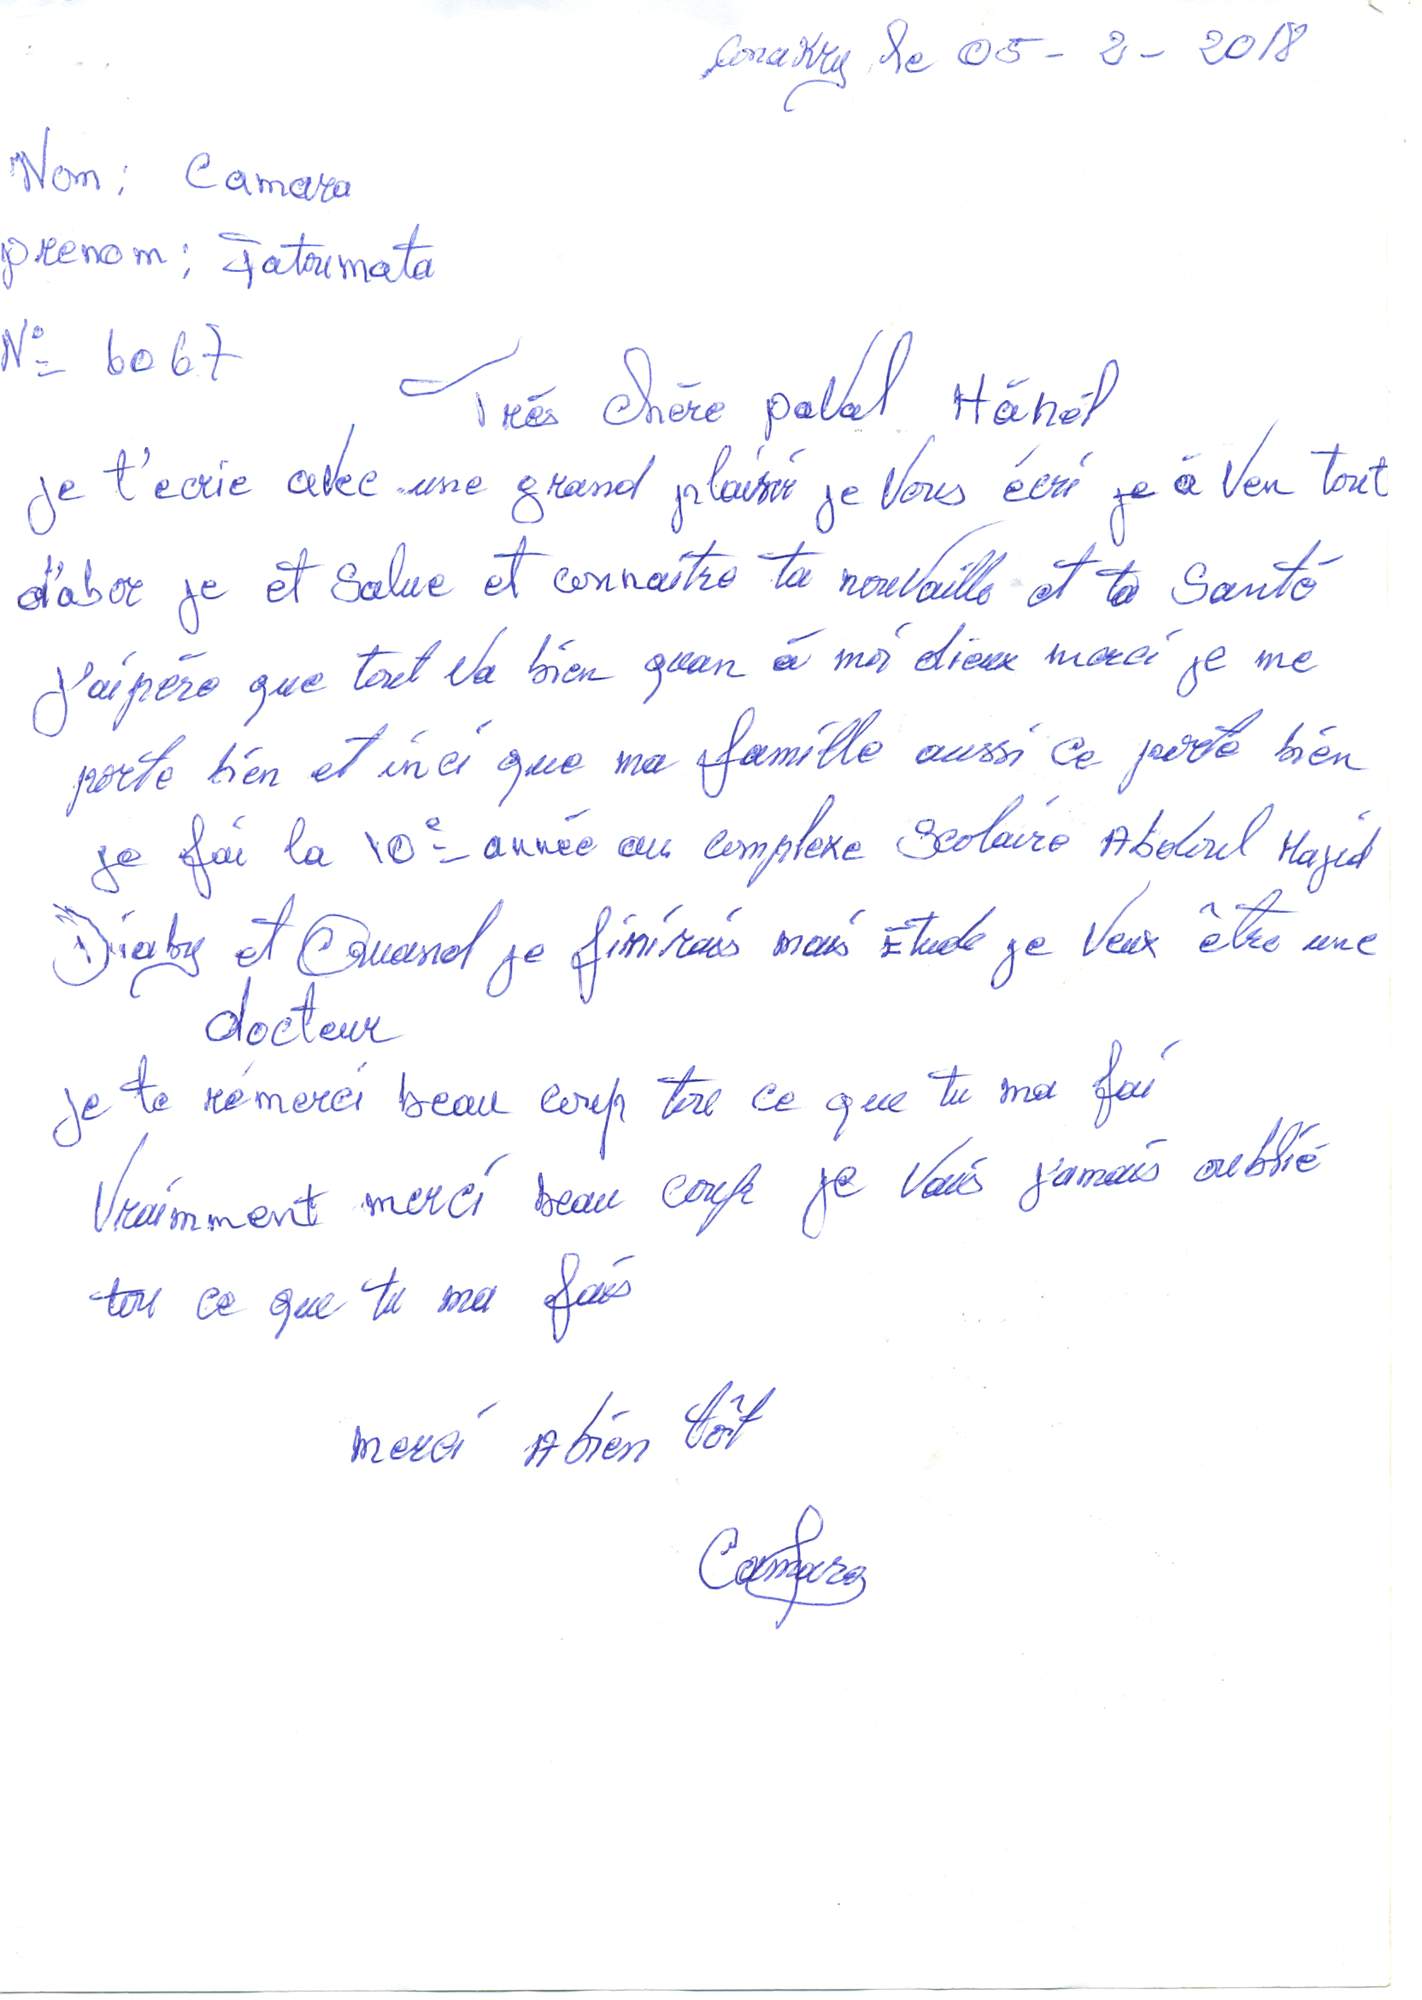 Conakry le 05 - 2 - 2018
Nom : Camara
prenom ; Fatoumata
N° 6067
Très Chère paVal Hánél
je t'ecrie avec une grand plaisir je Vous écri je à Ven tout
d'abor je et Salue et connaître ta nouvaille et ta Santé
j'aipère que tout Va bien quan à moi dieux merci je me
porte bien et inci que ma famille aussi ce porte bien
je fai la 10e année au complexe Scolaire Abdoul Majid
Diaby et Quand je finirais mais Etude je Veux être une
docteur
je te rémerci beau coup tou ce que tu ma fai
Vraimment merci beau coup je Vais j'amais oublié
tou ce que tu ma fais
merci A bien tôt
Camara